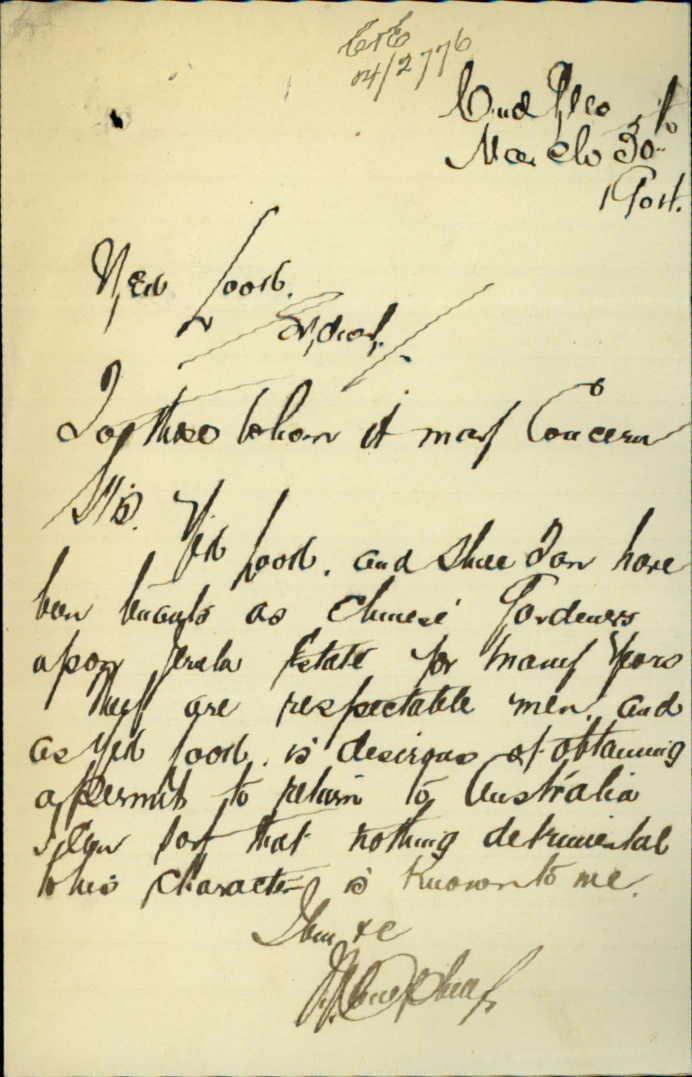 C&E
04/2776
March 30
Yed Foot.
To those whom it may Concern
Yed Foot. and Shee Tan have
been tenants as Chinese Gardeners
upon Estate for many Years
They are respectable men, and
as Yed Foot. is desirous of obtaining
a permit to return to Australia
I can say that nothing detrimental
to his character is Known to me.
Yours &c